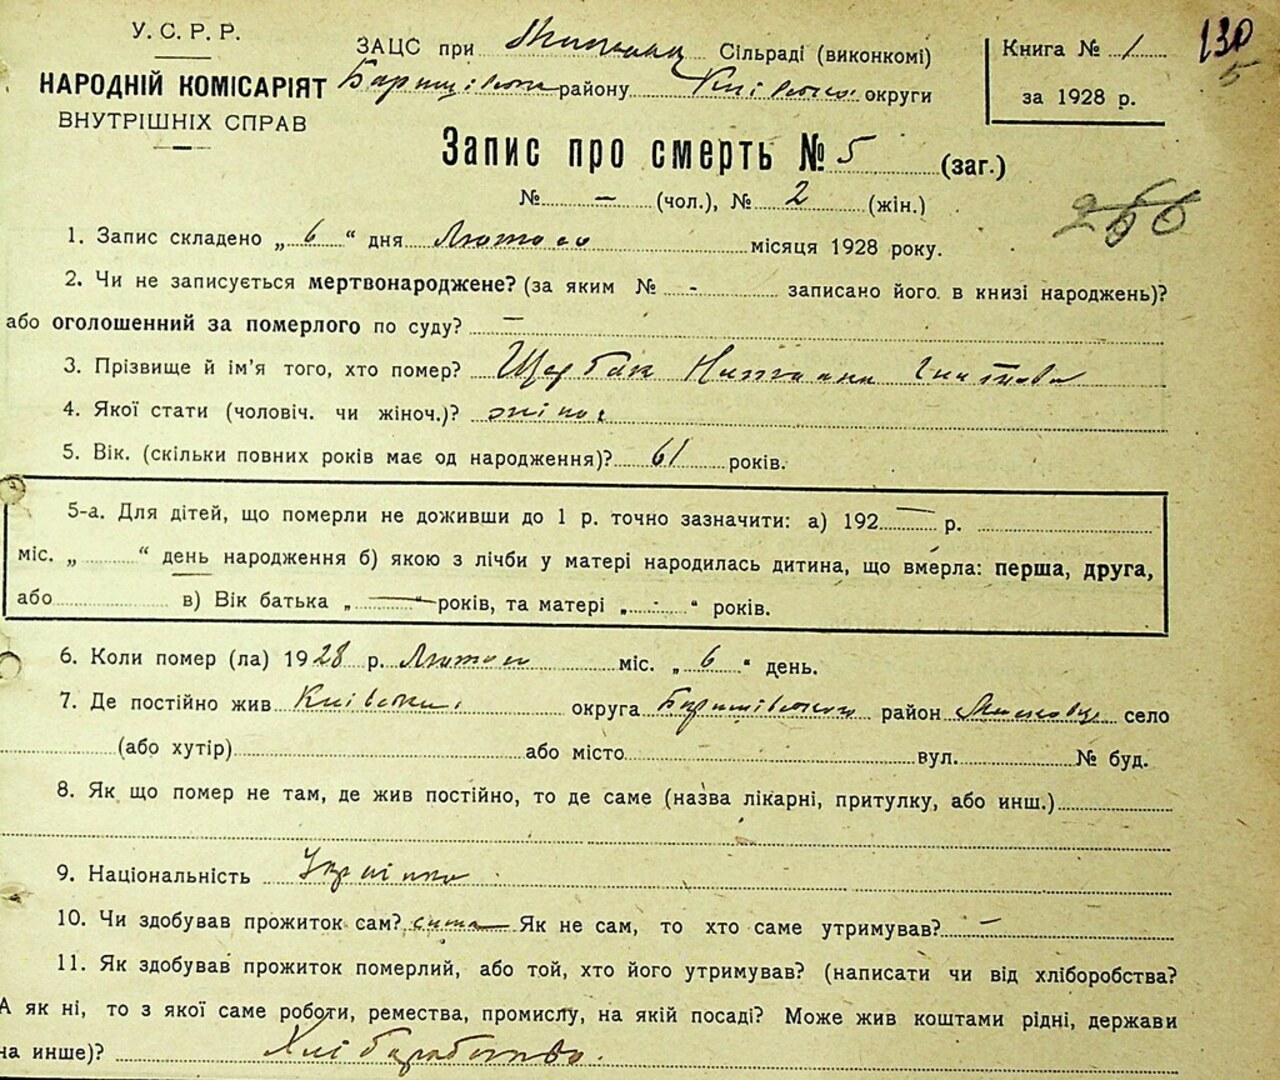 У. С. Р. Р.
НАРОДНІЙ КОМІСАРІЯТ
ВНУТРІШНІХ СПРАВ
ЗАЦС при Сільраді (виконкомі)
району округи
Книга № 1
за 1928 р.
130
5
Запис про смерть № 5 (заг.)
№ — (чол.), № 2 (жін.)
266
1. Запис складено „ 6 “ дня Лютого місяця 1928 року.
2. Чи не записується мертвонароджене? (за яким № - записано його в книзі народжень)?
або оголошенний за померлого по суду? —
3. Прізвище й ім'я того, хто помер? Щербак
4. Якої стати (чоловіч. чи жіноч.)?
5. Вік. (скільки повних років має од народження)? 61 років.
5-а. Для дітей, що померли не доживши до 1 р. точно зазначити: а) 192— р.
міс. „ “ день народження б) якою з лічби у матері народилась дитина, що вмерла: перша, друга,
або в) Вік батька „ — “ років, та матері „ - “ років.
6. Коли помер (ла) 1928 р. Лютого міс. „ 6 “ день.
7. Де постійно жив округа район село
(або хутір) або місто вул. № буд.
8. Як що помер не там, де жив постійно, то де саме (назва лікарні, притулку, або инш.)
9. Національність Українка
10. Чи здобував прожиток сам? сама Як не сам, то хто саме утримував? —
11. Як здобував прожиток померлий, або той, хто його утримував? (написати чи від хліборобства?
А як ні, то з якої саме роботи, ремества, промислу, на якій посаді? Може жив коштами рідні, держави
на инше)?